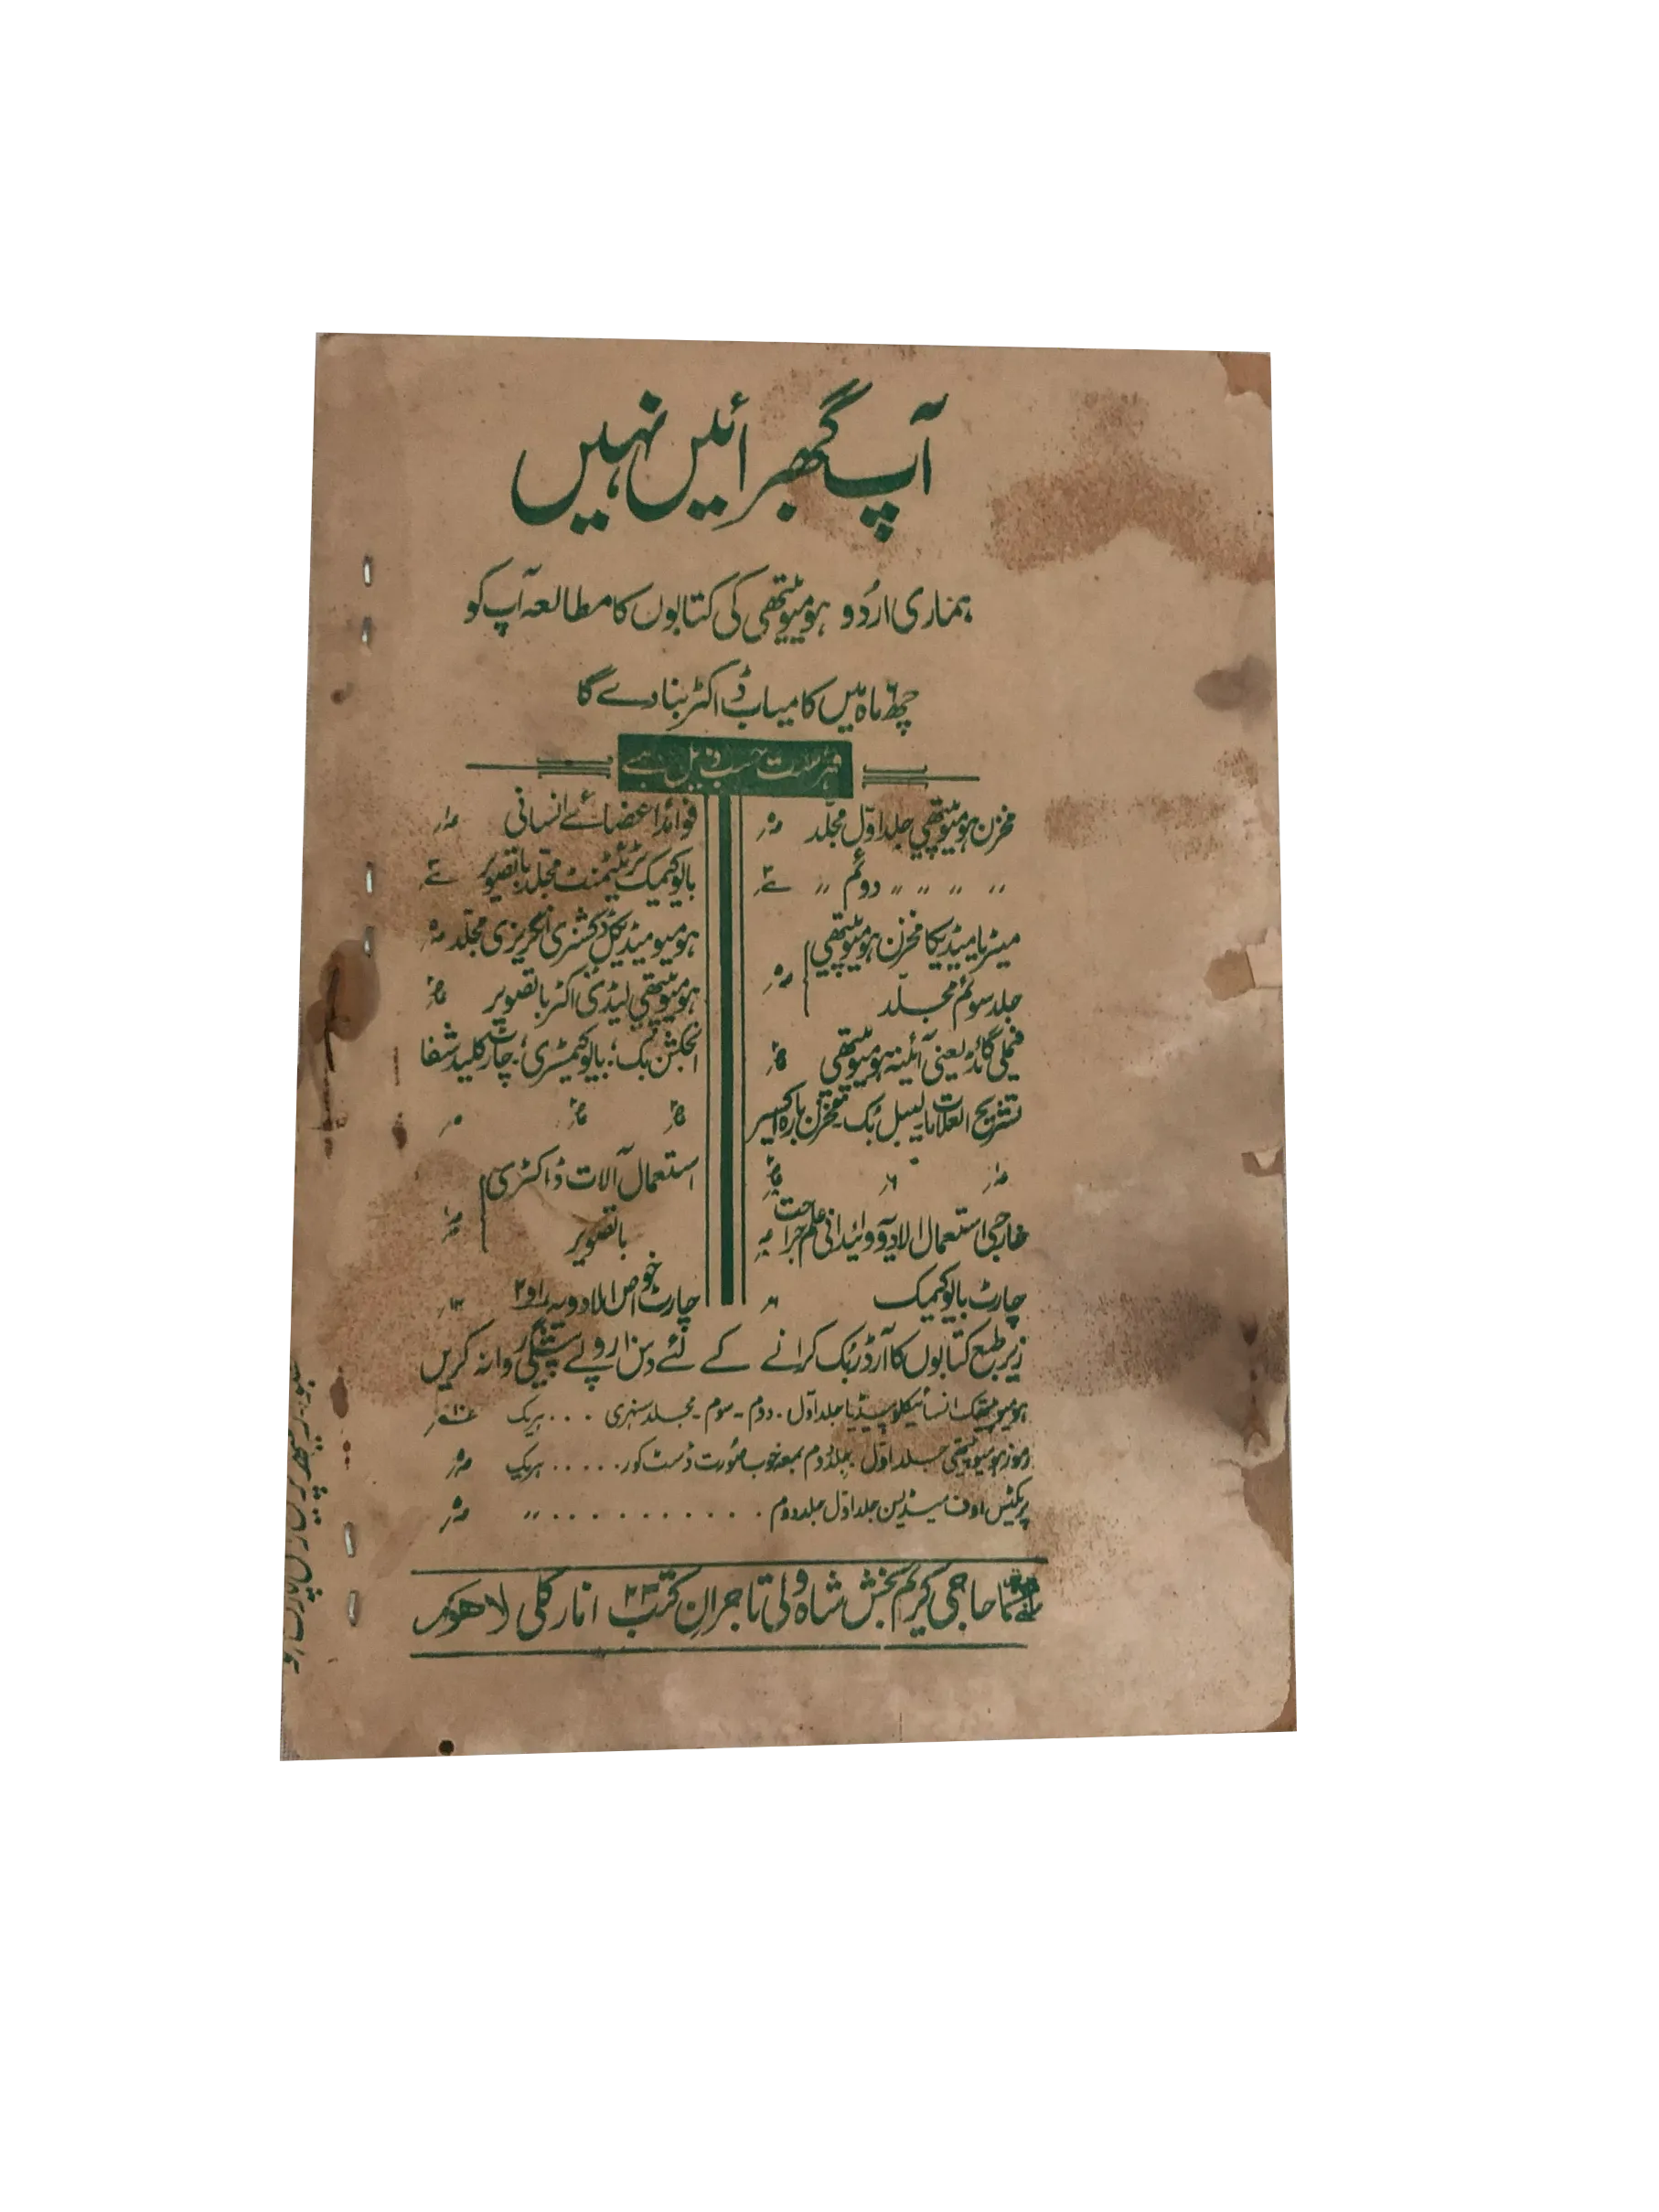 آپ گھبرائیں نہیں
ہماری اردو ہومیوپیتھی کی کتابوں کا مطالعہ آپ کو
چھ ۶ ماہ میں کامیاب ڈاکٹر بنا دے گا
فہرست حسب ذیل ہے
مخزن ہومیوپیتھی جلد اوّل مجلّد
〃 〃 〃 دوئم 〃
میٹریا میڈیکا مخزن ہومیوپیتھی
جلد سوئم مجلّد
فیملی گائڈ یعنی آئینہ ہومیوپیتھی
تشریح العلامات لیبل بُک مخزن بارہ اکسیر
خارجی استعمال الادویہ و ابتدائی علم جراحت
چارٹ بایوکیمک
فوائد اعضائے انسانی
بایوکیمک ٹریٹمنٹ مجلّد باتصویر
ہومیو میڈیکل ڈکشنری انگریزی مجلّد
ہومیوپیتھی لیڈی ڈاکٹر باتصویر
انجکشن بک؛ بایوکیمسٹری؛ چارٹ کلید شفا
استعمال آلات ڈاکٹری
باتصویر
چارٹ خواص الادویہ ۱ و ۲
زیر طبع کتابوں کا آرڈر بُک کرانے کے لئے دس ۱۰ روپے پیشگی روانہ کریں
ہومیوپیتھک انسائیکلوپیڈیا جلد اوّل - دوم - سوم - مجلد سنہری . . . ہر یک
رموز ہومیوپیتھی جلد اوّل جلد دوم بمعہ خوب صُورت ڈسٹ کور . . . . . ہر یک
پریکٹس اوف میڈیسن جلد اوّل جلد دوم . . . . . . . . . . 〃
حاجی کریم بخش شاہ ولی تاجرانِ کتب ۲۳ انارکلی لاہور